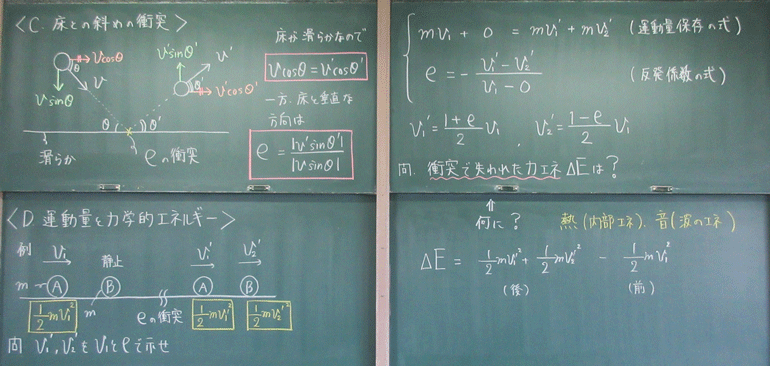 <C. 床との斜めの衝突>
vcosθ
θ
v
vsinθ
v'sinθ'
v'
θ'
v'cosθ'
θ
θ'
滑らか
eの衝突
床が滑らかなので
vcosθ = v'cosθ'
一方、床と垂直な
方向は
e = |v'sinθ'| / |vsinθ|
mv₁ + 0 = mv₁' + mv₂' (運動量保存の式)
e = - (v₁' - v₂') / (v₁ - 0) (反発係数の式)
v₁' = (1+e)/2 v₁ , v₂' = (1-e)/2 v₁
問. 衝突で失われた力エネΔEは?
<D 運動量と力学的エネルギー>
例 v₁ 静止 v₁' v₂'
m A B A B
m eの衝突
1/2 mv₁² 1/2 mv₁'² 1/2 mv₂'²
問 v₁', v₂'をv₁とeで示せ
⇑
何に? 熱(内部エネ)、音(波のエネ)
ΔE = 1/2 mv₁'² + 1/2 mv₂'² - 1/2 mv₁²
(後) (前)